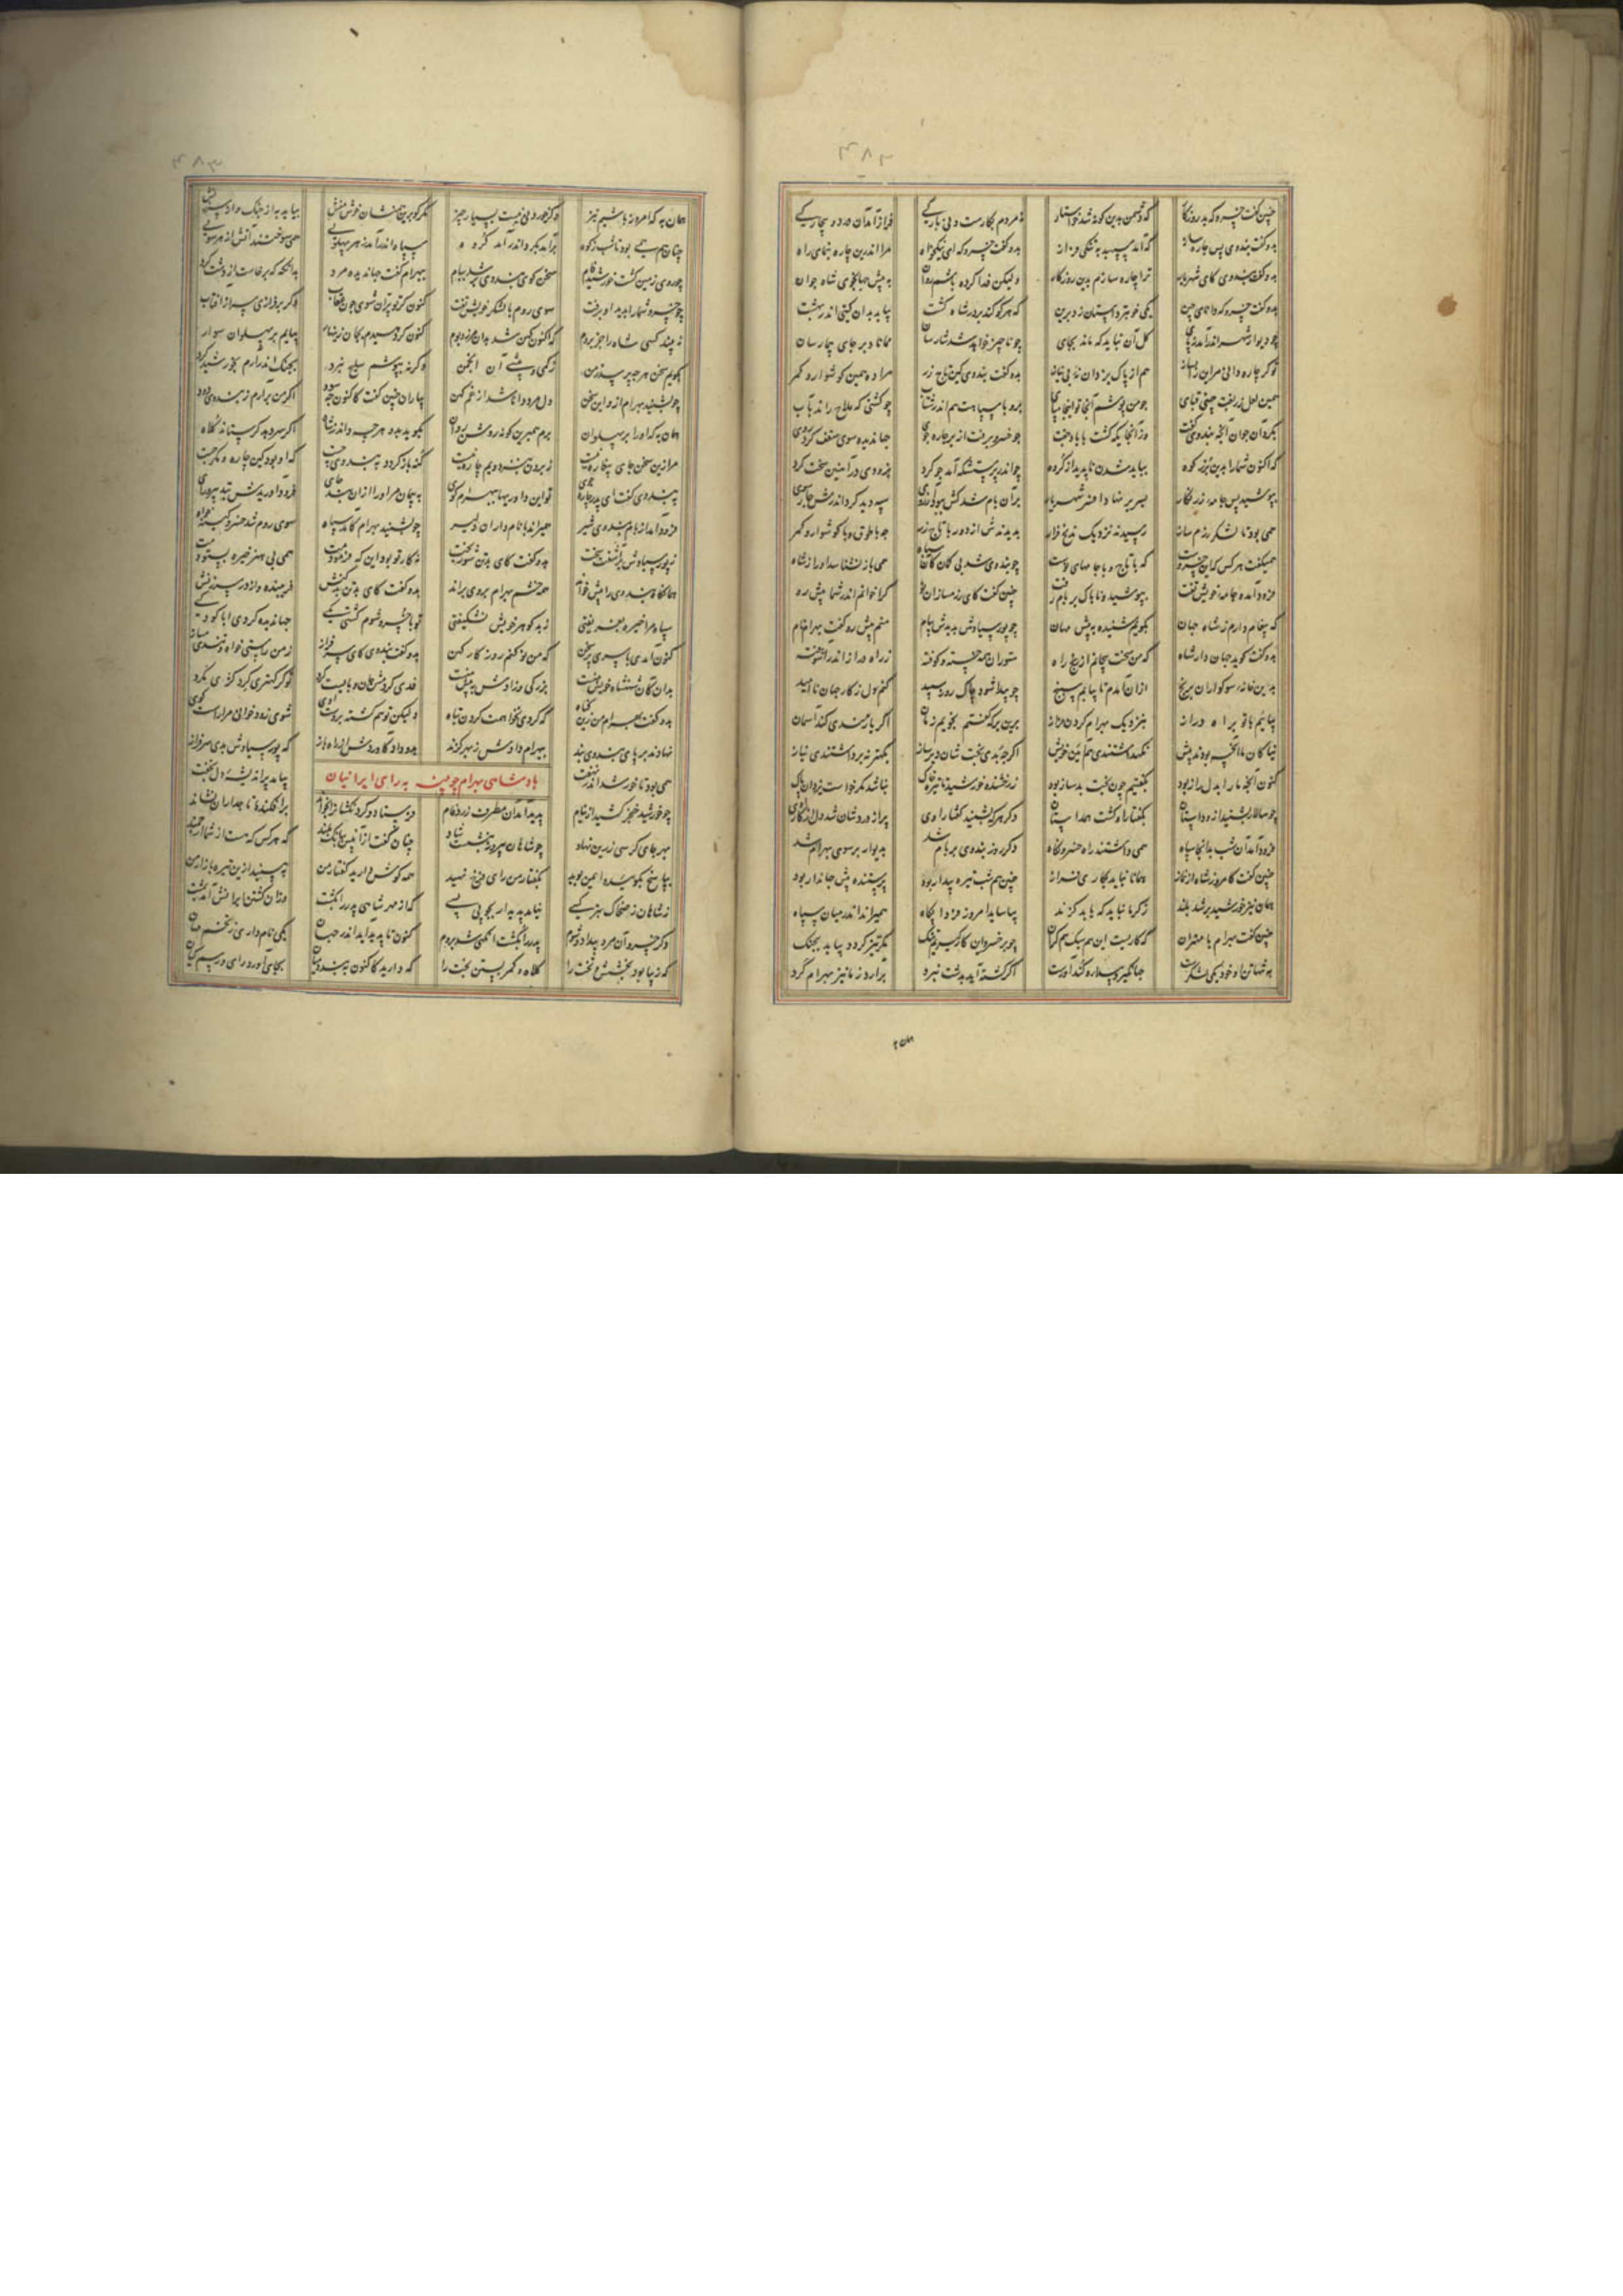 ۴۸۲
چنین گفت خسرو که بد روزگار که دشمن بدین گونه شد خواستار نه مردم بکارست و نی بارکی فراز آمد آن درد و بیچارکی
بدو گفت بندوی بس چاره ساز که آمد سپه به تنکی فراز بدو گفت خسرو که ای نیکخواه مرا اندرین چاره بنمای راه
بدو گفت بندوی کای شهریار ترا چاره سازم بدین روزگار ولیکن فدا کرده باشم روان به پیش جهانجوی شاه جوان
بدو گفت خسرو که دانای چین یکی خوب زد داستان برین که هر کو کند بر در شاه کشت بیابد بدان گیتی اندر بهشت
چو دیوار شهر اندر آمد ز پای کل آن نباید که ماند بجای چو ناچیز خواهد شد شارسان ممانا دبر جای بیمارسان
توگر چاره دانی مر این را بساز هم از پاک یزدان نه بی نیاز بدو گفت بندوی کین تاج زر مرا ده همین گوشوار و کمر
همین لعل زربفت چینی قبای چو من پوشم آنجا تو اینجا مپای برو با سپاهت هم اندر شتاب چو کشتی که ملاح راند بآب
بکرد آن جوان آنچه بندوی گفت وزآنجایکه گشت با باد جفت چو خسرو برفت از بر چاره جوی جهاندیده سوی سقف کرد روی
که اکنون شما را بدین برز کوه بباید شدن ناپدید از گروه چو اندر پرستشکه آمد چو گرد بزودی در آهنین سخت کرد
بپوشید پس جامه زرنگار بسر بر نهاد افسر شهریار بران بام شد کش نبود آرزوی سپه دید گرد اندرش چارسوی
همی بود تا لشکر رزم ساز رسیدند نزدیک دژ فراز بدیدندش از دور با تاج زر چه با طوق و با گوشوار و کمر
همیگفت هر کس که این خسروست که با تاج و با جامهای نوست چو بندوی شد بی گمان کان سپاه همی باز نشناسد او را ز شاه
فرود آمد و جامه خویش تفت بپوشید و ناباک بر بام رفت چنین گفت کای رزمسازان نو کرا خوانم اندر شما پیش رو
که پیغام دارم ز شاه جهان بگویم شنیده به پیش مهان چو پور سیاوش بدیدش ببام منم پیش رو گفت بهرام نام
بدو گفت گوید جهاندار شاه که من سخت پیچانم از رنج راه ستوران همه خسته و کوفته ز راه دراز اندر آشوفته
بدین خانه سوگواران برنج ازان آمدم تا بیابم سپنج چو پیدا شود چاک روز سپید کنم دل ز کار جهان ناامید
بیایم باتو براه دراز بنزدیک بهرام گردن فراز برین برگ گفتم بجویم زمان اگر یارمندی کند آسمان
نیاکان ما آنچه بودند پیش نکهداشتندی همین خوش اگرچه بدی بخت شان دیرساز بکهتر نه برداشتندی نیاز
کنون آنچه ما را بدل راز بود بگفتیم چون بخت بد ساز بود ز رخشنده خورشید تا تیره خاک نباشد مگر خواست یزدان پاک
چو سالار بشنید ازو داستان بگفتارا و گشت همداستان دگر هرکه بشنید گفتار اوی پر از درد شان شد دل از کار اوی
فرود آمد آن شب بدانجا سپاه همی داشتند راه خسرو نگاه دگر روز بندوی بر بام شد بدیوار بر سوی بهرام شد
چنین گفت کامروز شاه از نماز همانا نیاید بکاری فراز چنین هم شب تیره بیدار بود پرستنده پیش جهاندار بود
همان نیز خورشید برشد بلند ز گرما نباید که یابد گزند بیاساید امروز و فردا پگاه همیراند اندر میان سپاه
چنین گفت بهرام با مهتران که کاریست این هم سبک هم گران چو بر خسرو این کار گیریم تنگ مگر تیز گردد بیاید بجنگ
به تنها تن او خود یکی لشکرست جهانگیر و بیدار و گندآورست اگر کشته آید بدشت نبرد برآرد ز ما نیز بهرام گرد
همان به
۴۸۳
همان به که امروز باشیم نیز وگر خوردنی نیست بسیار چیز مگر کو برین هم نشان خوش منش بیاید به از جنگ و از سرزنش
چنان هم همی بود تا شب ز کوه برآمد بگرد اندر آمد گروه سپاه اندر آمد ز هر پهلویی همی سوختند آتش از هر سویی
چو روی زمین گشت خورشید فام سخن گوی بندوی بر شد ببام ببهرام گفت جهاندیده مرد بدانگه که برخاست از دشت گرد
چو خسرو شما را بدید او برفت سوی روم با لشکر خویش تفت کنون گر تو پران شوی چون عقاب وگر برفرازی سر از آفتاب
نه بیند کسی شاه را جز بروم که اکنون کهن شد بدان مرز و بوم کنون گر دهیدم بجان زینهار بیایم بر پهلوان سوار
بگویم سخن هرچه پرسد ز من ز کمی و بیشی آن انجمن وگرنه بپوشم سلیح نبرد بجنگ اندر آرم بخورشید گرد
چو بشنید بهرام ازو این سخن دل مرد دانا شد از غم کهن بیاران چنین گفت کاکنون چه سود اگر من برآرم ز بندوی دود
همان به که او را بر پهلوان برم همبرین گونه روشن روان بگوید بدو هرچه داند ز شاه اگر سر دهد گر ستاند کلاه
به بندوی گفت ای بد چاره جوی تو این داوریها به بهرام گوی
فرود آمد از بام بندوی شیر همیراند با نامداران دلیر چو بشنید بهرام کامد سپاه سوی روم شد خسرو کینه خواه
ز پور سیاوش برآشفت سخت بدو گفت کای بدتن شوربخت نه کار تو بود این که فرمودمت همی بی هنر خیره بستودمت
همانگاه بندوی را پیش خواند همه خشم بهرام بروی براند بدو گفت کای بدتن بدکنش فریبنده و از در سرزنش
سپاه مرا خیره بفریفتی ز بد گوهر خویش نشکیفتی تو با خسرو شوم گشتی یکی جهاندیده کردی ابا کودکی
کنون آمدی با سری پر سخن که من نو کنم روزگار کهن بدو گفت بندوی کای سرفراز ز من راستی خواه و تندی مساز
بدان کان شهنشاه خویش منست بزرگی و رادیش پیش منست فدی کردمش جان و بایست کرد تو گر مهتری گرد کژی مگرد
بدو گفت بهرام من زین گناه که کردی نخواهمت کردن تباه ولیکن تو هم کشته بر دست اوی شوی زود و خوانی مرا راست گوی
نهادند بر پای بندوی بند ببهرام دادش ز بهر گزند
همی بود تا خورشید اندر نهفت بیامد پر اندیشه دل بخفت
پادشاهی بهرام چوبینه به رای ایرانیان
چو خورشید خنجر کشید از نیام پدید آمد آن مطرف زردفام فرستاد و گردنکشان را بخواند برافکنده تا جداران نشاند
بهر جای کرسی زرین نهاد چو شاهان پیروز بنشست شاد چنان گفت از آن پس ببانگ بلند که هرکس که هست از شما ارجمند
ز شاهان ز ضحاک بتر کسی نیاید پدیدار بجویی بسی که از بهر شاهی پدر را بکشت وزان کشتن ایرانش آمد بمشت
دگر خسرو آن مرد بیداد و شوم پدر را بکشت آنگهی شد بروم کنون تا پدید آید اندر جهان یکی نامداری ز تخم مهان
که زیبا بود بخشش و تخت را کلاه و کمر بستن بخت را که دارید کاکنون ببندد میان بجای آورد رای و رسم کیان